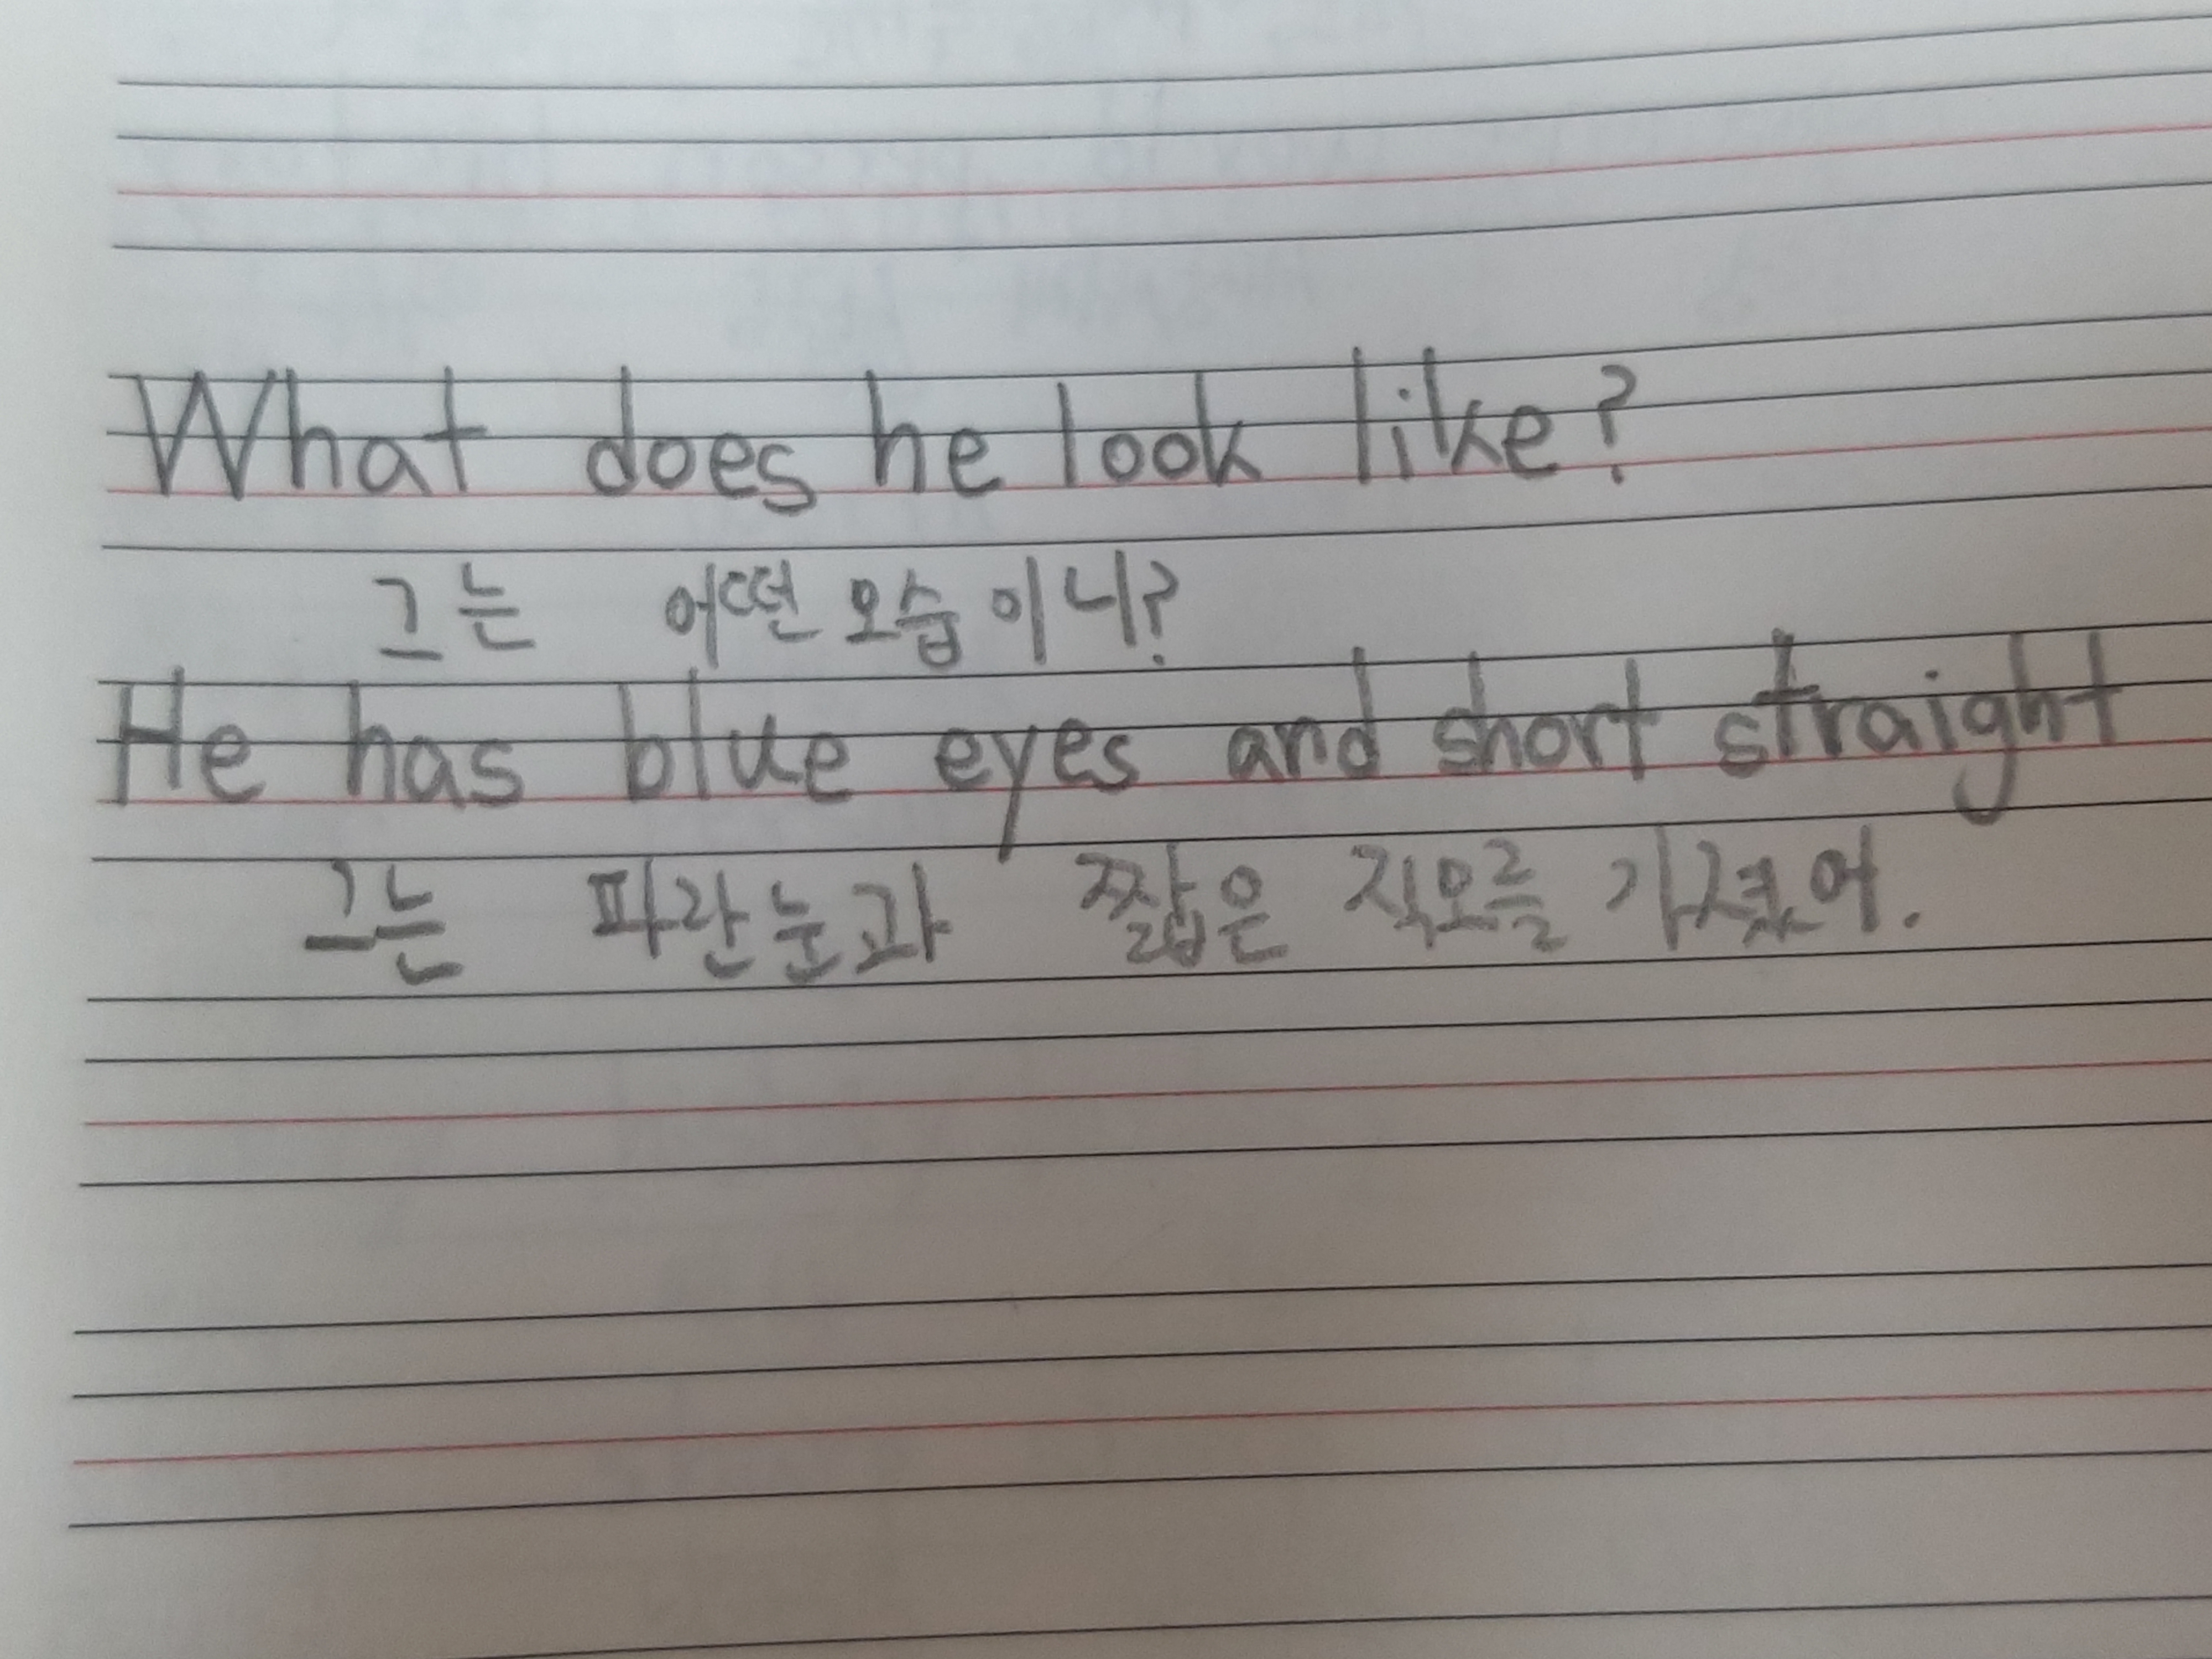 What does he look like?
그는 어떤 모습이니?
He has blue eyes and short straight
그는 파란눈과 짧은 직모를 가졌어.